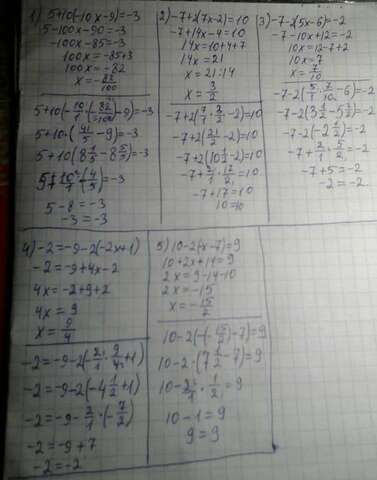 1) 5+10(-10x-9)=-3
5-100x-90=-3
-100x-85=-3
100x=-85+3
100x=-82
x=-82/100
5+10(-10/1·(-82/100)-9)=-3
5+10·(41/5-9)=-3
5+10(8 1/5-8 5/5)=-3
5+10/1·(-4/5)=-3
5-8=-3
-3=-3
2) -7+2(7x-2)=10
-7+14x-4=10
14x=10+4+7
14x=21
x=21:14
x=3/2
-7+2(7/1·3/2-2)=10
-7+2(21/2-2)=10
-7+2(10 1/2-2)=10
-7+2/1·17/2=10
-7+17=10
10=10
3) -7-2(5x-6)=-2
-7-10x+12=-2
10x=12-7+2
10x=7
x=7/10
-7-2(5/1·7/10-6)=-2
-7-2(3 1/2-5 2/2)=-2
-7-2(-2 1/2)=-2
-7+2/1·5/2=-2
-7+5=-2
-2=-2
4) -2=-9-2(-2x+1)
-2=-9+4x-2
4x=-2+9+2
4x=9
x=9/4
-2=-9-2(-2/1·9/4+1)
-2=-9-2(-4 1/2+1)
-2=-9-2/1·(-7/2)
-2=-9+7
-2=-2
5) 10-2(x-7)=9
10+2x+14=9
2x=9-14-10
2x=-15
x=-15/2
10-2(-(-15/2)-7)=9
10-2·(7 1/2-7)=9
10-2/1·1/2=9
10-1=9
9=9